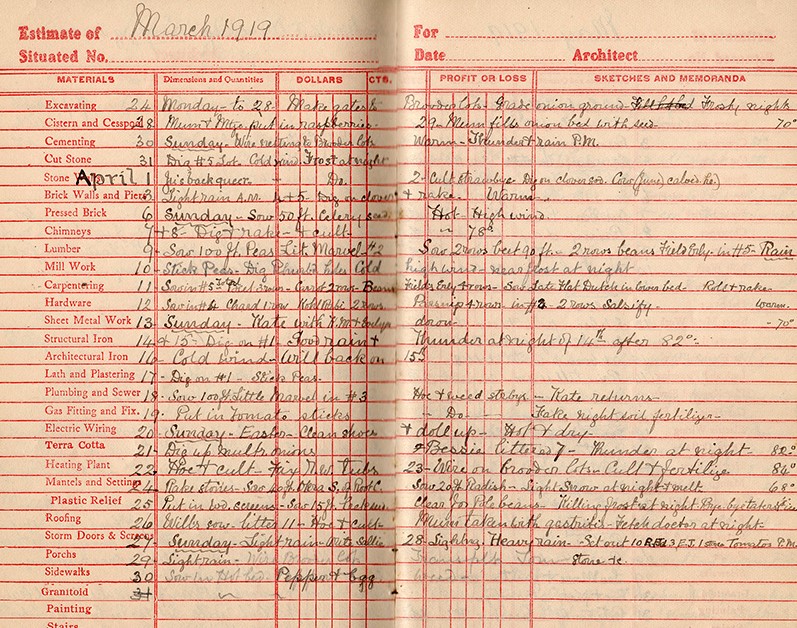 Estimate of March 1919 For
Situated No. Date Architect
MATERIALS Dimensions and Quantities DOLLARS CTS. PROFIT OR LOSS SKETCHES AND MEMORANDA
Excavating 24 Monday - to 28 - Make gates to Brooder lots - Grade onion ground - Frosty nights
Cistern and Cesspool 28 Mum & Mtge put in raspberries 29 - Mum fills onion bed with seed 70°
Cementing 30 Sunday - Wire to Brooder lots Warm - Thunder & rain P.M.
Cut Stone 31 Dig #5 Lot. Cold wind. Frost at night
Stone April 1 Jii's back queer. Do. 2 - Cult strawbys Dig on clover sod. Cow (June) calved
Brick Walls and Piers 3 Light rain A.M. 4 + 5 - Dig on clover + rake. Warm
Pressed Brick 6 Sunday - Sow 50 ft. Celery seed Hot - High wind.
Chimneys 7 + 8 - Dig & rake - & cult - " 78°
Lumber 9 - Sow 100 ft. Peas Lit. Marvel #2 Sow 2 rows beet 90 ft - 2 rows beans in #5 - Rain
Mill Work 10 - Stick Peas - Dig Rhubarb holes Cold high wind - near frost at night
Carpentering 11 Sow in #5 beet 3 rows - Carrot 2 rows - Beans 4 rows - Sow Late Flat Dutch in lower bed Roll & rake
Hardware 12 Sow in #4 Chard 1 row Kohl Rabi 2 rows Parsnip 4 rows in #2 - 2 rows Salsify - Warm.
Sheet Metal Work 13 - Sunday - Kate with down - 70°
Structural Iron 14 & 15 - Dig on #1 - Good rain & Thunder at night of 14th after 82°.
Architectural Iron 16 - Cold Wind - Will back on 15th
Lath and Plastering 17 - Dig on #1 - Stick Peas.
Plumbing and Sewer 18 Sow 100 ft Little Marvel in #3 Hoe & weed stbys - Kate returns -
Gas Fitting and Fix. 19. Put in Tomato sticks " Do - Take night soil fertilizer -
Electric Wiring 20 - Sunday - Easter - Clean shoes & doll up - Hot & dry -
Terra Cotta 21 - Dig up mult onions Bessie litters 7 - Thunder at night - 82°
Heating Plant 22 Hoe & Cult - Fix N.W. Tubs 23 - Wire on Brooder lots - Cult & fertilize 84°
Mantels and Setting 24 Rake stones - Sow Sow 20 ft Radish - Light Snow at night & melt 68°
Plastic Relief 25 Put in wd. screens - Sow 15 ft Clear for Pole beans - Killing frost at night
Roofing 26 Will's sow - litter 11 - Hoe & Cult - Mum taken with gastritis - Fetch doctor at night -
Storm Doors & Screens 27 - Sunday - Light rain - Write Sallie 28 - Heavy rain - Set out 10 3 E.J. 1 Stone Tomatoes P.M.
Porchs 29 - Light rain - Stone &c.
Sidewalks 30 Sow in Hot bed Pepper & Egg
Granitoid 31 " "
Painting
Stairs